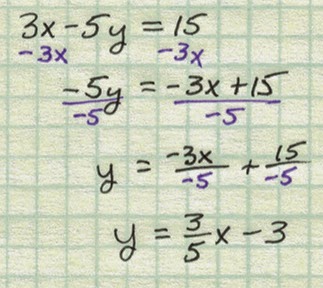 3x - 5y = 15
-3x -3x
-5y = -3x + 15
-5 -5
y = -3x/-5 + 15/-5
y = 3/5 x - 3